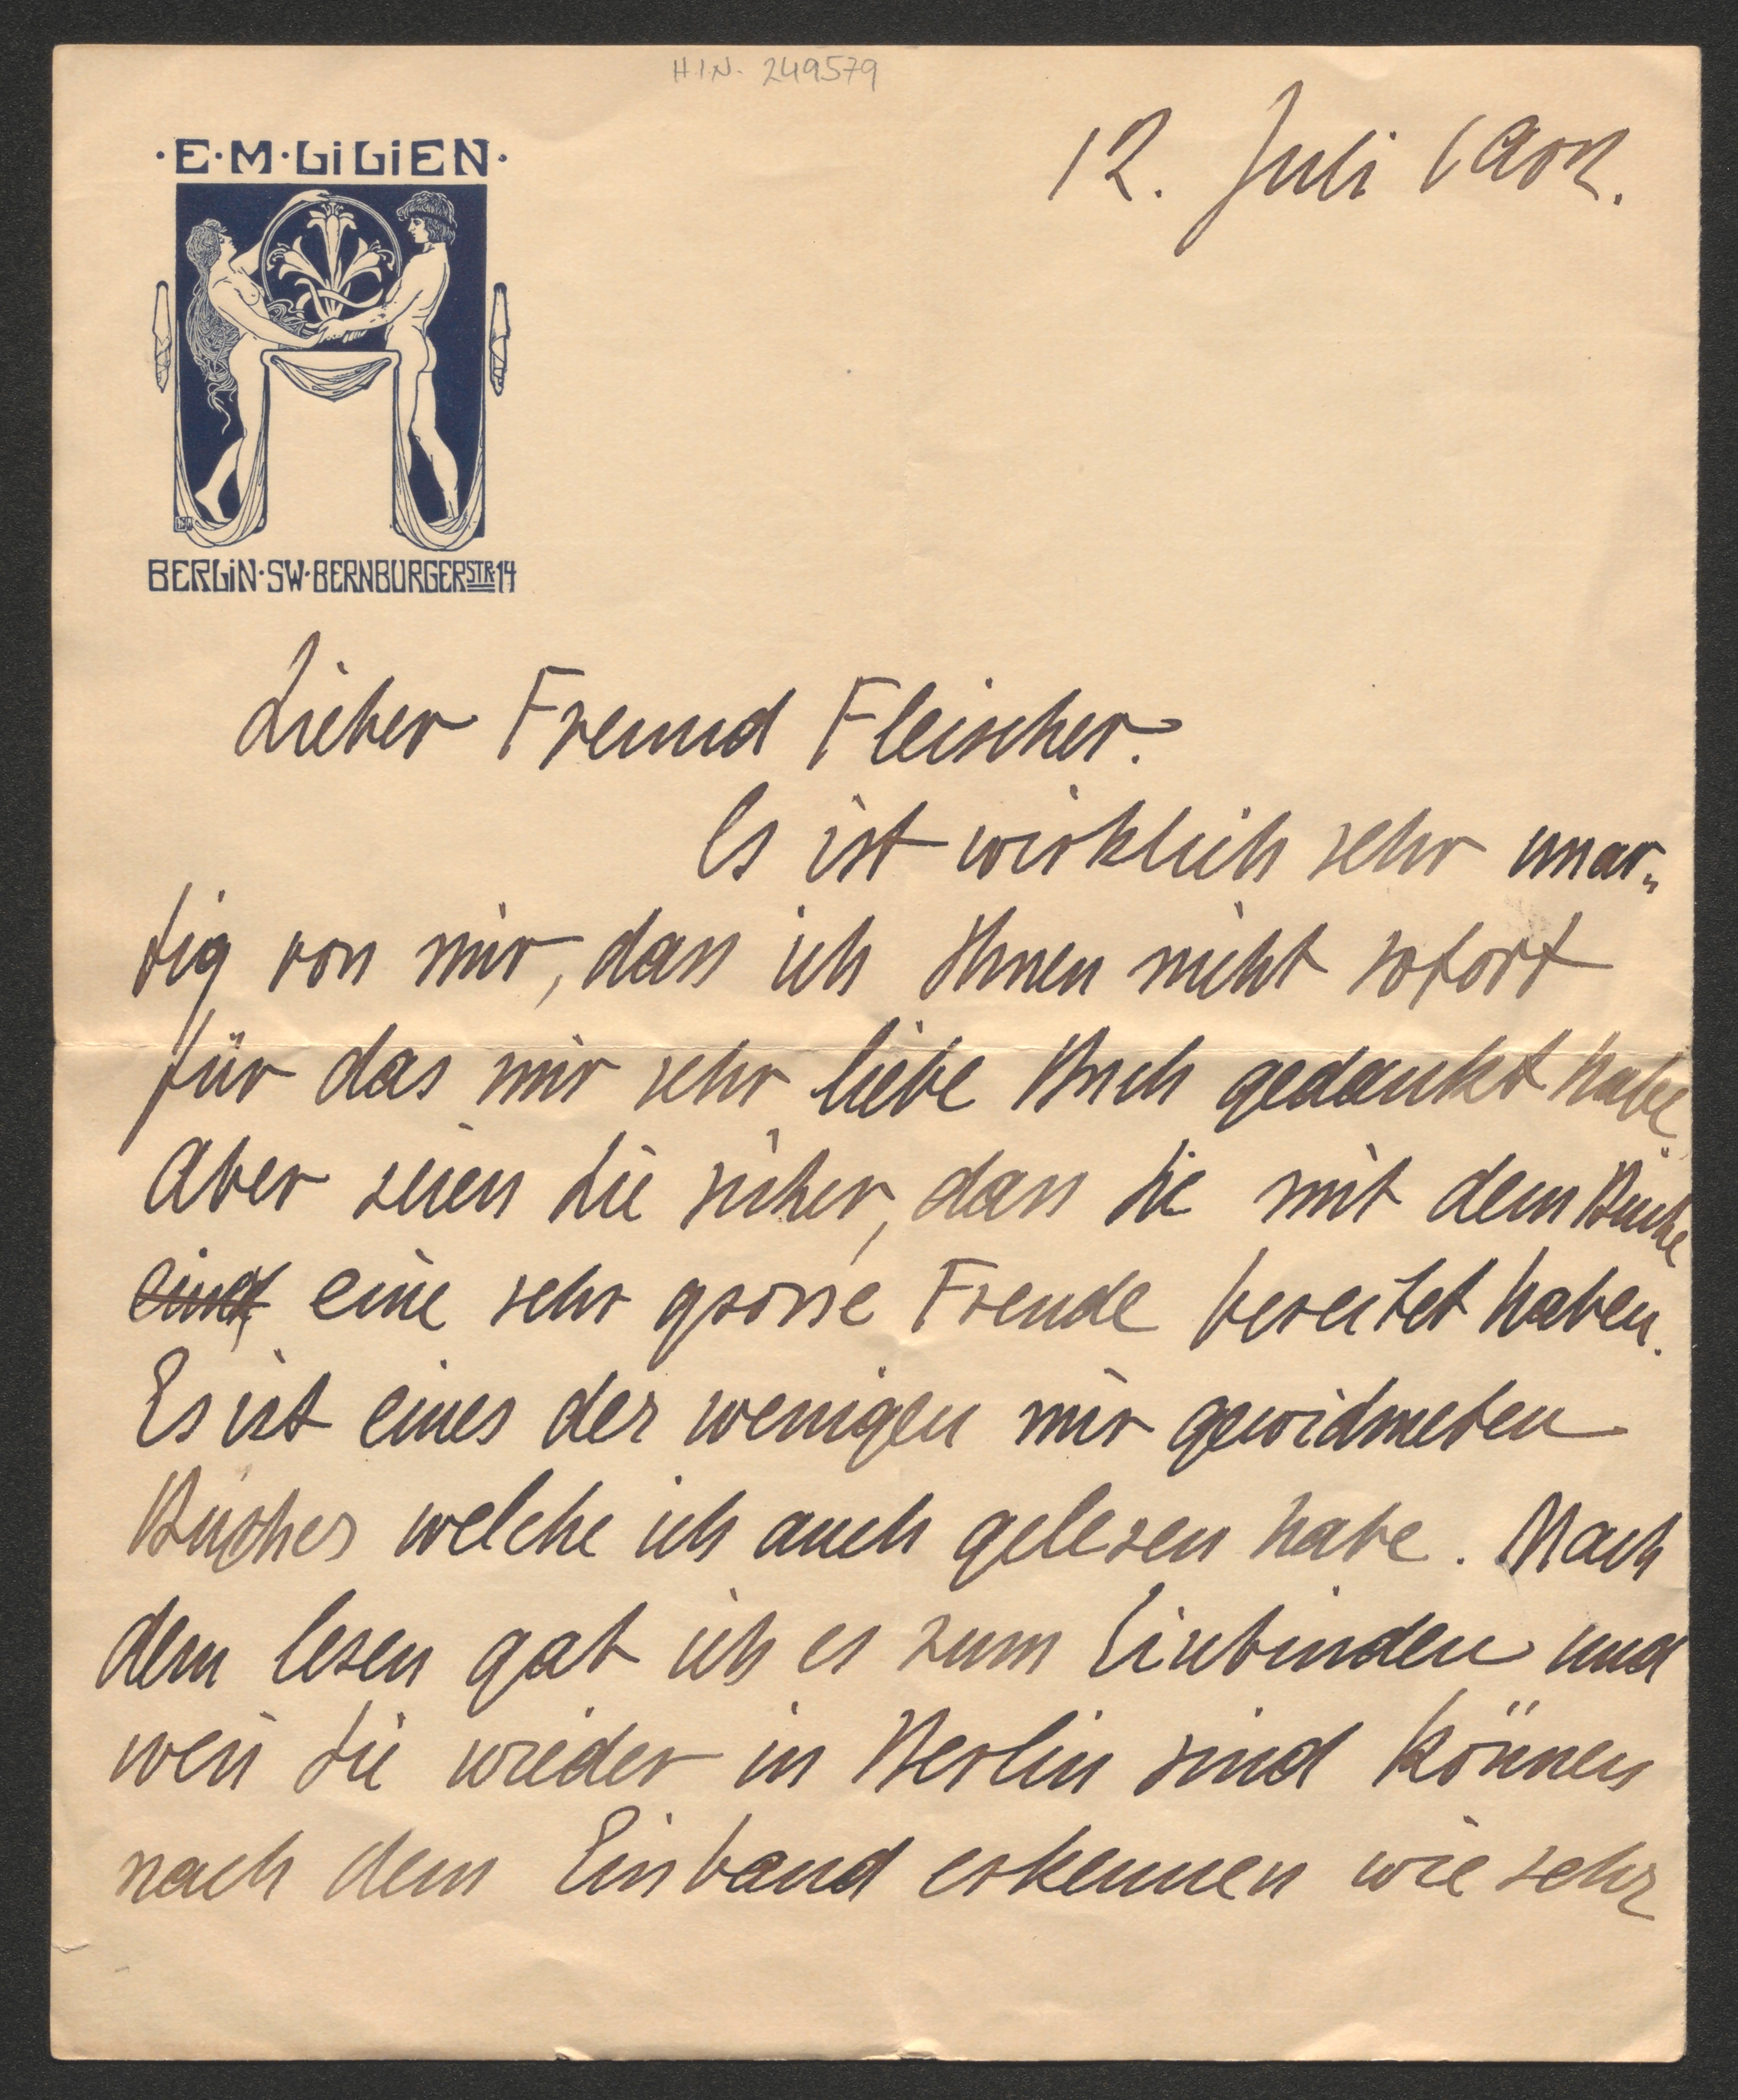 H.I.N. 249579
12. Juli 1902.
·E·M·LiLiEN·
BERLiN·SW·BERNBURGERSTR·14
Lieber Freund Fleischer.
Es ist wirklich sehr unar-
tig von mir, dass ich Ihnen nicht sofort
für das mir sehr liebe Buch gedankt habe.
Aber seien Sie sicher, dass Sie mit dem Buche
eine sehr grosse Freude bereitet haben.
Es ist eines der wenigen mir gewidmeten
Bücher welche ich auch gelesen habe. Nach
dem lesen gab ich es zum Einbinden und
wen̄ Sie wieder in Berlin sind können
nach dem Einband erkennen wie sehr